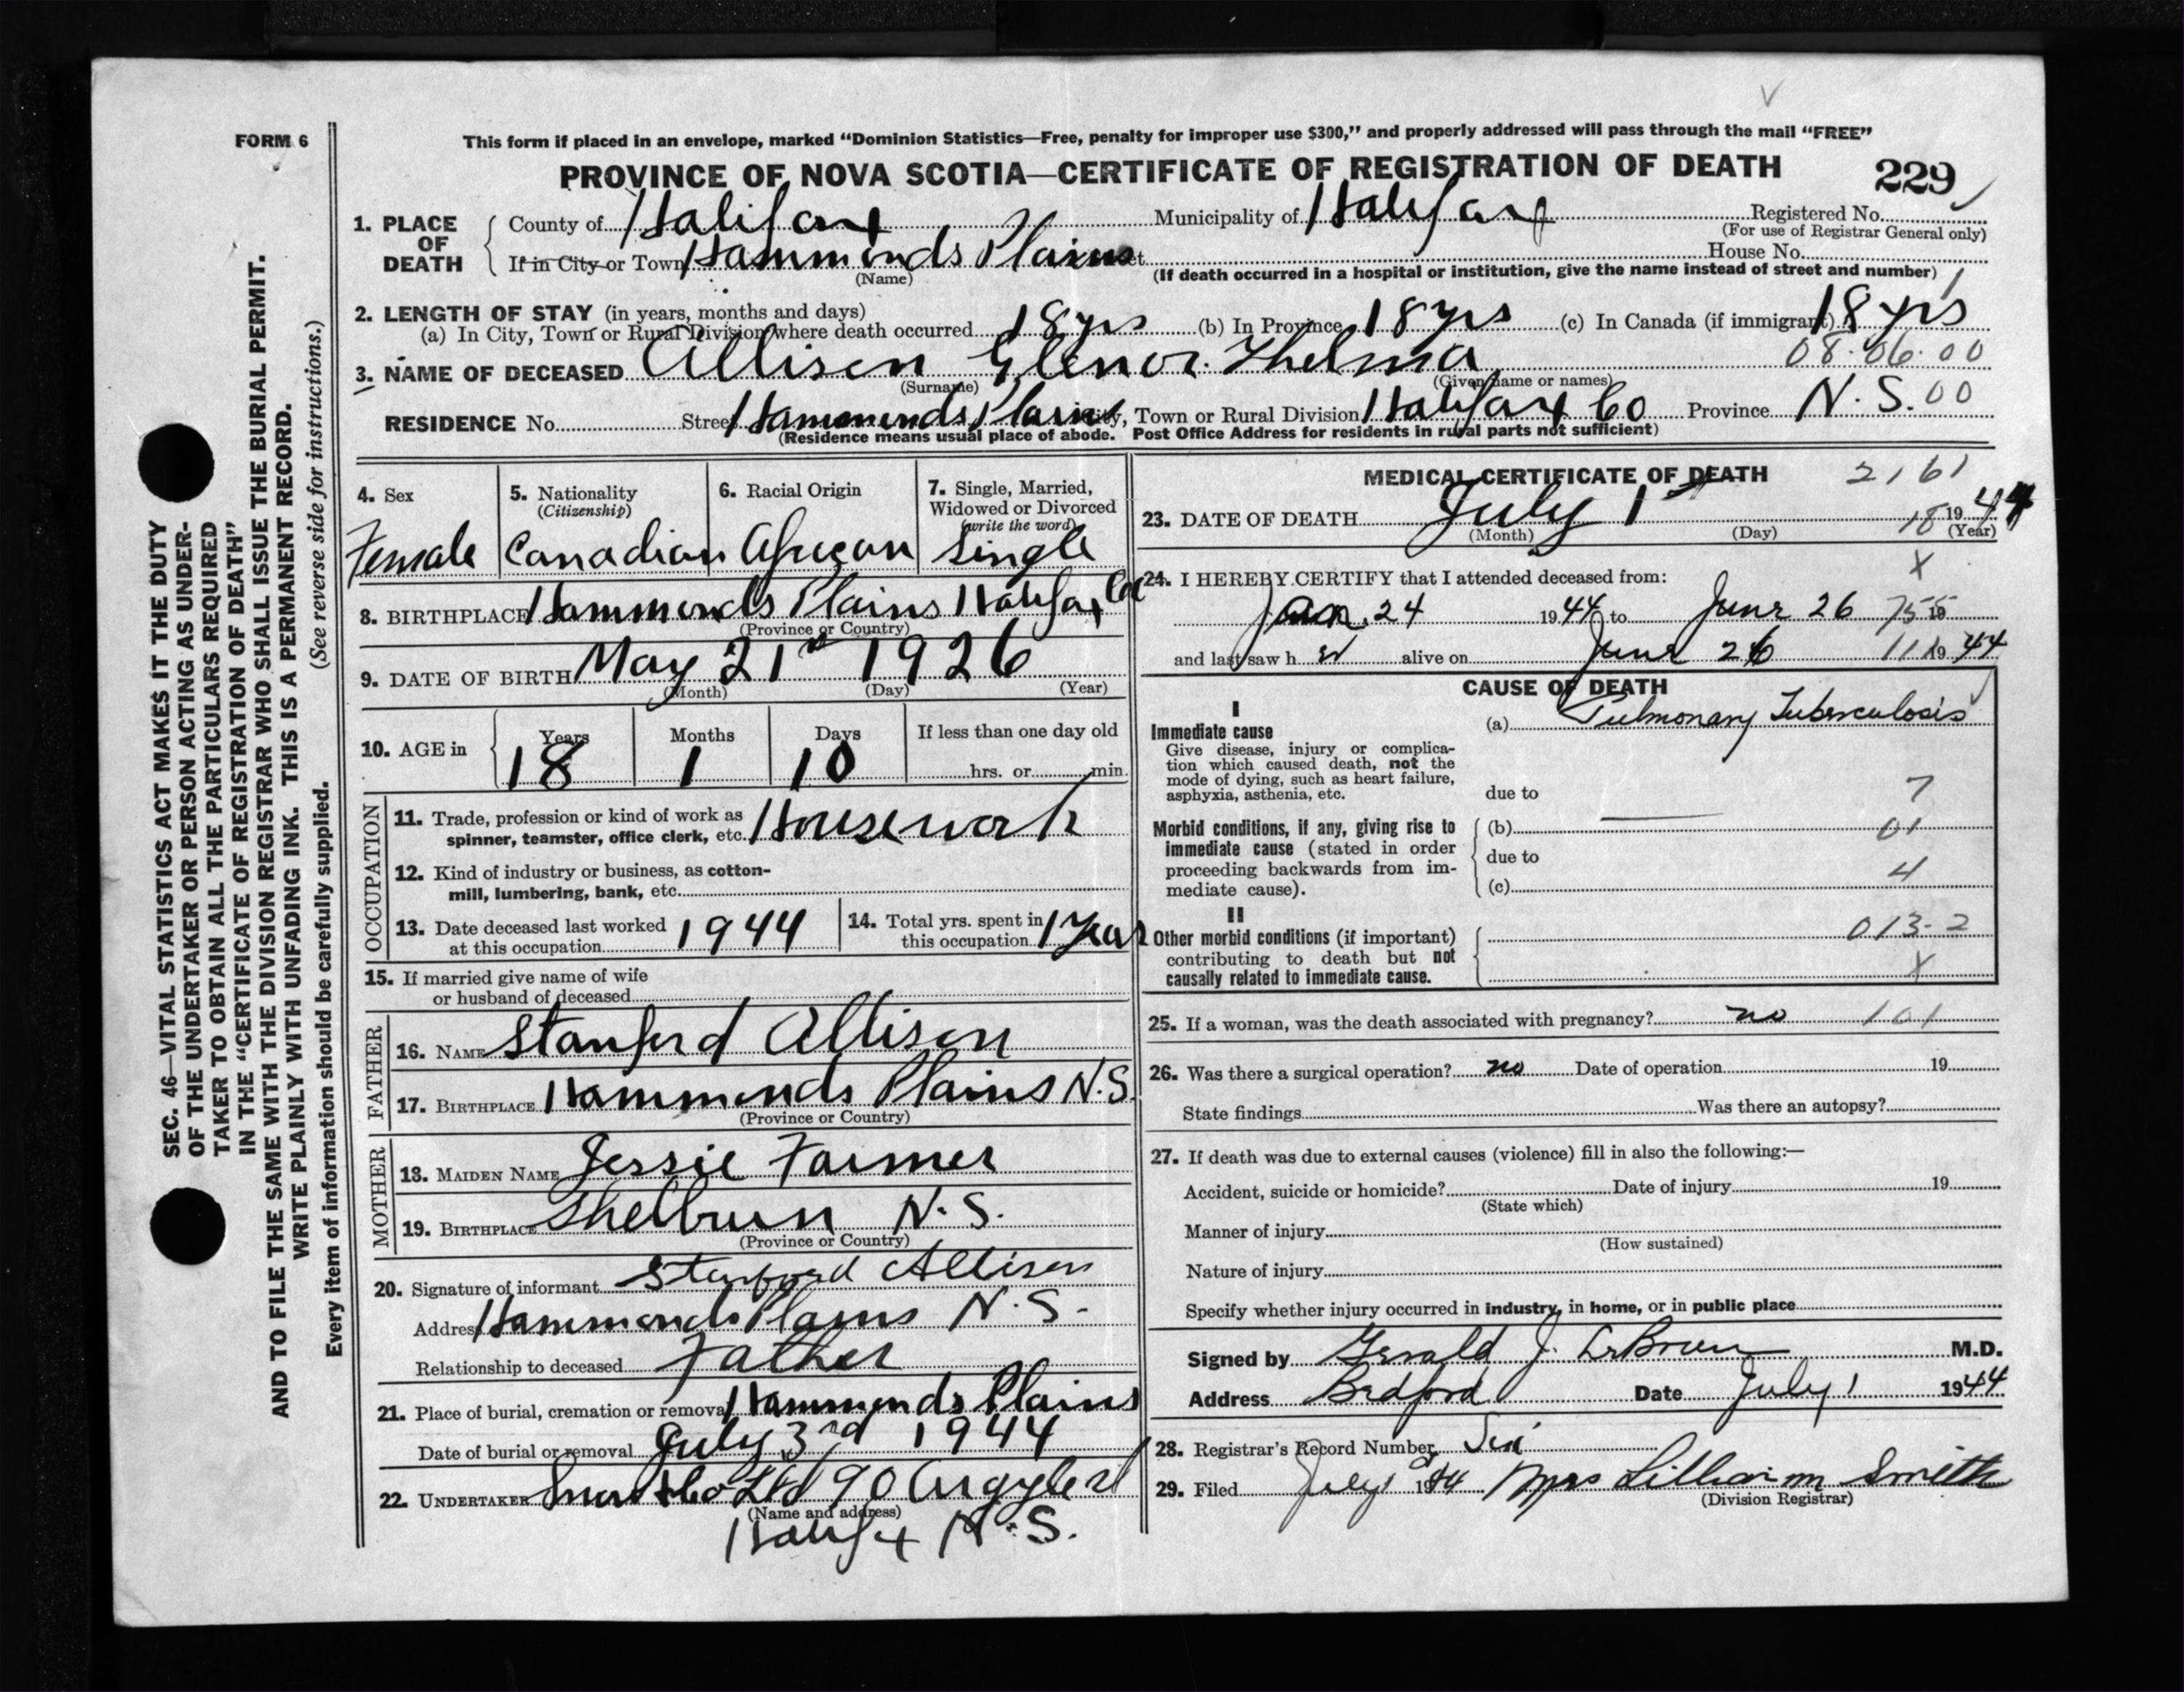 FORM 6
This form if placed in an envelope, marked “Dominion Statistics—Free, penalty for improper use $300,” and properly addressed will pass through the mail “FREE”
PROVINCE OF NOVA SCOTIA—CERTIFICATE OF REGISTRATION OF DEATH 229
SEC. 46—VITAL STATISTICS ACT MAKES IT THE DUTY
OF THE UNDERTAKER OR PERSON ACTING AS UNDER-
TAKER TO OBTAIN ALL THE PARTICULARS REQUIRED
IN THE “CERTIFICATE OF REGISTRATION OF DEATH”
AND TO FILE THE SAME WITH THE DIVISION REGISTRAR WHO SHALL ISSUE THE BURIAL PERMIT.
WRITE PLAINLY WITH UNFADING INK. THIS IS A PERMANENT RECORD.
Every item of information should be carefully supplied. (See reverse side for instructions.)
1. PLACE OF DEATH County of Halifax Municipality of Halifax Registered No.
(For use of Registrar General only)
If in City or Town Hammonds Plains House No.
(Name) (If death occurred in a hospital or institution, give the name instead of street and number)
2. LENGTH OF STAY (in years, months and days)
(a) In City, Town or Rural Division where death occurred 18 yrs (b) In Province 18 yrs (c) In Canada (if immigrant) 18 yrs
3. NAME OF DECEASED Allison Glenor Thelma 08.06.00
(Surname) (Given name or names)
RESIDENCE No. Street Hammonds Plains City, Town or Rural Division Halifax Co Province N.S. 00
(Residence means usual place of abode. Post Office Address for residents in rural parts not sufficient)
4. Sex 5. Nationality (Citizenship) 6. Racial Origin 7. Single, Married, Widowed or Divorced (write the word)
Female Canadian African Single
8. BIRTHPLACE Hammonds Plains Halifax Co
(Province or Country)
9. DATE OF BIRTH May 21st 1926
(Month) (Day) (Year)
10. AGE in Years Months Days If less than one day old
18 1 10 hrs. or min.
OCCUPATION
11. Trade, profession or kind of work as
spinner, teamster, office clerk, etc. Housework
12. Kind of industry or business, as cotton-
mill, lumbering, bank, etc.
13. Date deceased last worked at this occupation 1944 14. Total yrs. spent in this occupation 1 Year
15. If married give name of wife
or husband of deceased
FATHER
16. NAME Stanford Allison
17. BIRTHPLACE Hammonds Plains N.S.
(Province or Country)
MOTHER
18. MAIDEN NAME Jessie Farmer
19. BIRTHPLACE Shelburn N.S.
(Province or Country)
20. Signature of informant Stanford Allison
Address Hammonds Plains N.S.
Relationship to deceased Father
21. Place of burial, cremation or removal Hammonds Plains
Date of burial or removal July 3rd 1944
22. UNDERTAKER Snow & Co Ltd 90 Argyle st
(Name and address)
Halifax N.S.
MEDICAL CERTIFICATE OF DEATH 2161
23. DATE OF DEATH July 1st 18 1944
(Month) (Day) (Year)
X
24. I HEREBY CERTIFY that I attended deceased from:
Jan. 24 1944 to June 26 19
and last saw h er alive on June 26 1944
CAUSE OF DEATH
I
Immediate cause (a) Pulmonary Tuberculosis
Give disease, injury or complica-
tion which caused death, not the
mode of dying, such as heart failure,
asphyxia, asthenia, etc. due to 7
Morbid conditions, if any, giving rise to (b) 01
immediate cause (stated in order due to
proceeding backwards from im- 4
mediate cause). (c)
II
Other morbid conditions (if important) 013-2
contributing to death but not X
causally related to immediate cause.
25. If a woman, was the death associated with pregnancy? no 101
26. Was there a surgical operation? no Date of operation 19
State findings Was there an autopsy?
27. If death was due to external causes (violence) fill in also the following:—
Accident, suicide or homicide? Date of injury 19
(State which)
Manner of injury
(How sustained)
Nature of injury
Specify whether injury occurred in industry, in home, or in public place
Signed by Gerald J. LeBrun M.D.
Address Bedford Date July 1 1944
28. Registrar's Record Number Six
29. Filed July 1st 1944 Mrs Lillian M Smith
(Division Registrar)